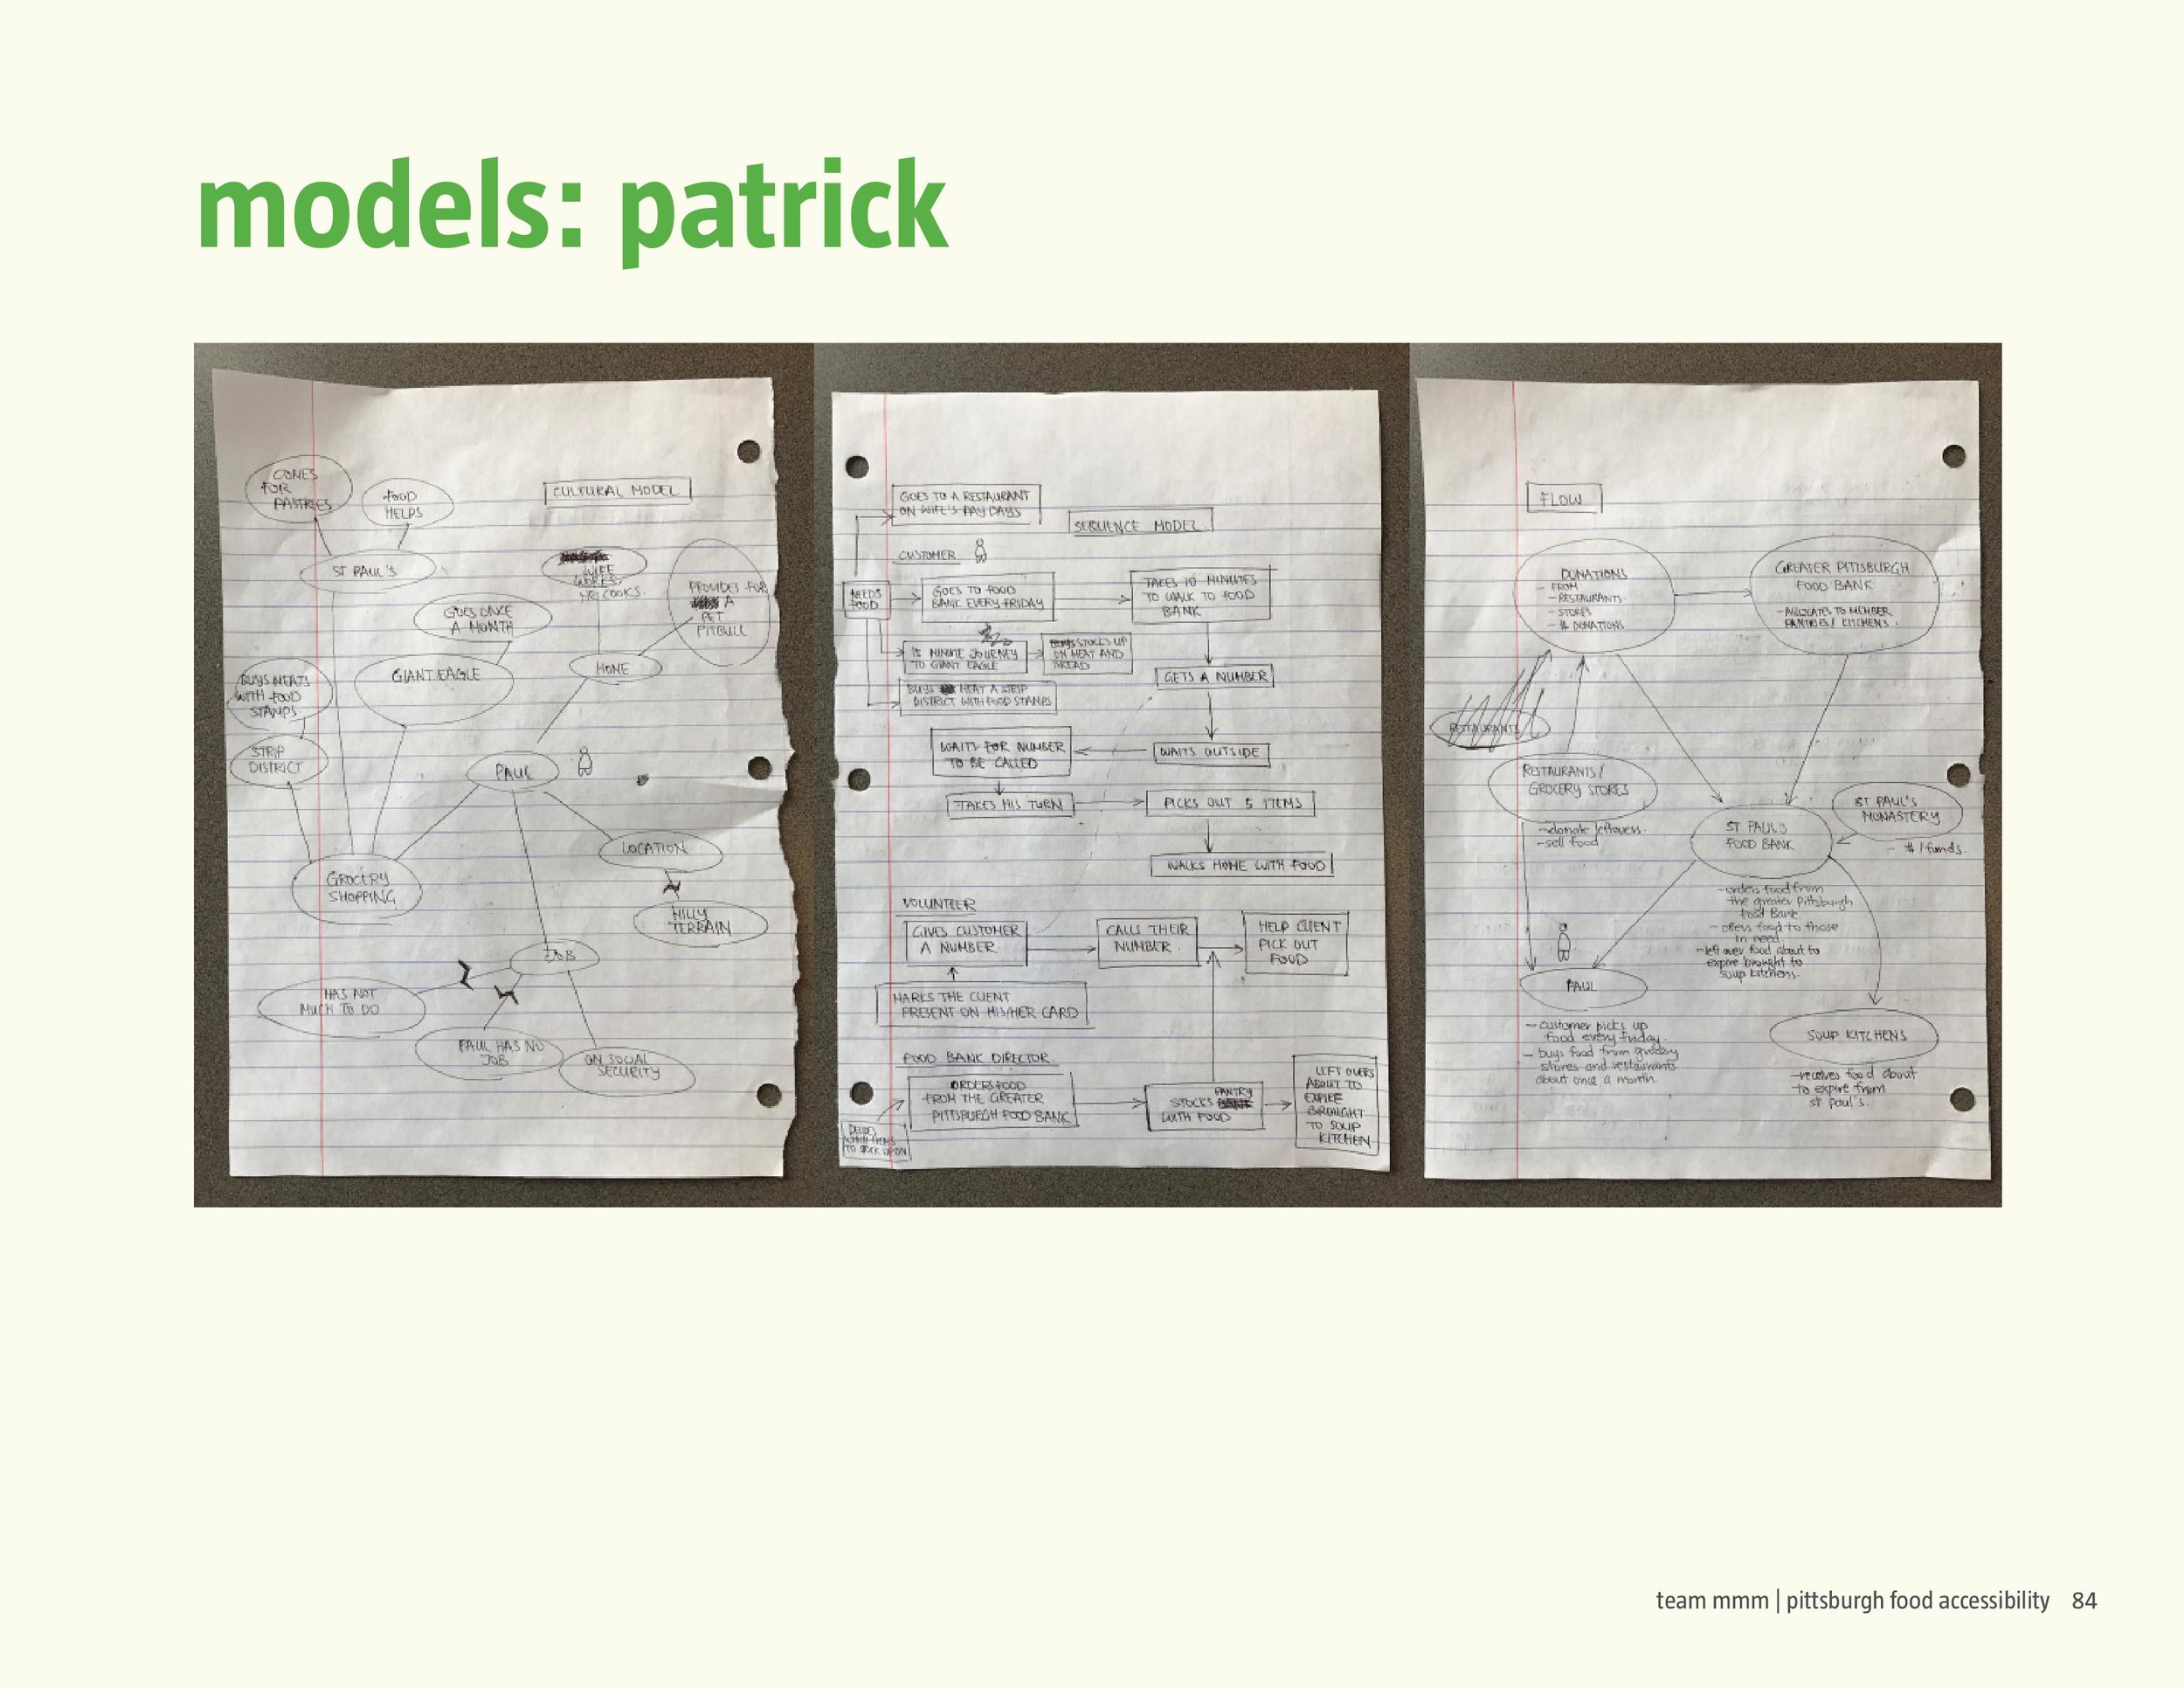 models: patrick
CULTURAL MODEL
COMES
FOR
PASTRIES
FOOD
HELPS
ST PAUL'S
WIFE
WORKS,
HE COOKS.
PROVIDES FOR
A
PET
PITBULL
GOES ONCE
A MONTH
GIANT EAGLE
HOME
BUYS MEATS
WITH FOOD
STAMPS.
STRIP
DISTRICT
PAUL
GROCERY
SHOPPING
LOCATION
HILLY
TERRAIN
JOB
HAS NOT
MUCH TO DO
PAUL HAS NO
JOB
ON SOCIAL
SECURITY
GOES TO A RESTAURANT
ON WIFE'S PAY DAYS
SEQUENCE MODEL.
CUSTOMER
NEEDS
FOOD
GOES TO FOOD
BANK EVERY FRIDAY
TAKES 10 MINUTES
TO WALK TO FOOD
BANK
15 MINUTE JOURNEY
TO GIANT EAGLE
STOCKS UP
ON MEAT AND
BREAD
BUYS MEAT A STRIP
DISTRICT WITH FOOD STAMPS
GETS A NUMBER
WAITS OUTSIDE
WAITS FOR NUMBER
TO BE CALLED
TAKES HIS TURN
PICKS OUT 5 ITEMS
WALKS HOME WITH FOOD
VOLUNTEER
GIVES CUSTOMER
A NUMBER.
CALLS THEIR
NUMBER.
HELP CLIENT
PICK OUT
FOOD
MARKS THE CLIENT
PRESENT ON HIS/HER CARD
FOOD BANK DIRECTOR.
ORDERS FOOD
FROM THE GREATER
PITTSBURGH FOOD BANK
STOCKS PANTRY
WITH FOOD
LEFT OVERS
ABOUT TO
EXPIRE
BROUGHT
TO SOUP
KITCHEN
DECIDES
WHICH ITEMS
TO STOCK UP ON
FLOW
DONATIONS
- FROM
- RESTAURANTS
- STORES
- $ DONATIONS
GREATER PITTSBURGH
FOOD BANK
- ALLOCATES TO MEMBER
PANTRIES / KITCHENS.
RESTAURANTS
RESTAURANTS/
GROCERY STORES
- donate leftovers.
- sell food
ST PAUL'S
FOOD BANK
ST PAUL'S
MONASTERY
- $/funds.
- orders food from
the greater Pittsburgh
food Bank
- offers food to those
in need
- left over food about to
expire brought to
soup kitchens.
PAUL
- customer picks up
food every friday.
- buys food from grocery
stores and restaurants
about once a month.
SOUP KITCHENS
- receives food about
to expire from
st paul's.
team mmm | pittsburgh food accessibility 84